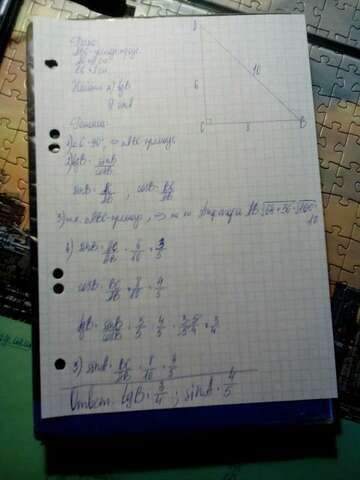 Дано:
АВС-
АС=6 см
ВС=8 см
Найти: а) tgB
б) sinA
A
6
10
C
8
B
Решение
1) ∠C=90°, => △ABC-прямоуг.
2) tgB = sinB/cosB
sinB = AC/AB, cosB = BC/AB
3) т.к. △ABC-прямоуг, => по т. Пифагора AB=√64+36=√100=
10
4) sinB = AC/AB = 6/10 = 3/5
cosB = BC/AB = 8/10 = 4/5
tgB = sinB/cosB = 3/5 : 4/5 = 3/5·5/4 = 3/4
5) sinA = BC/AB = 8/10 = 4/5
Ответ: tgB = 3/4; sinA = 4/5